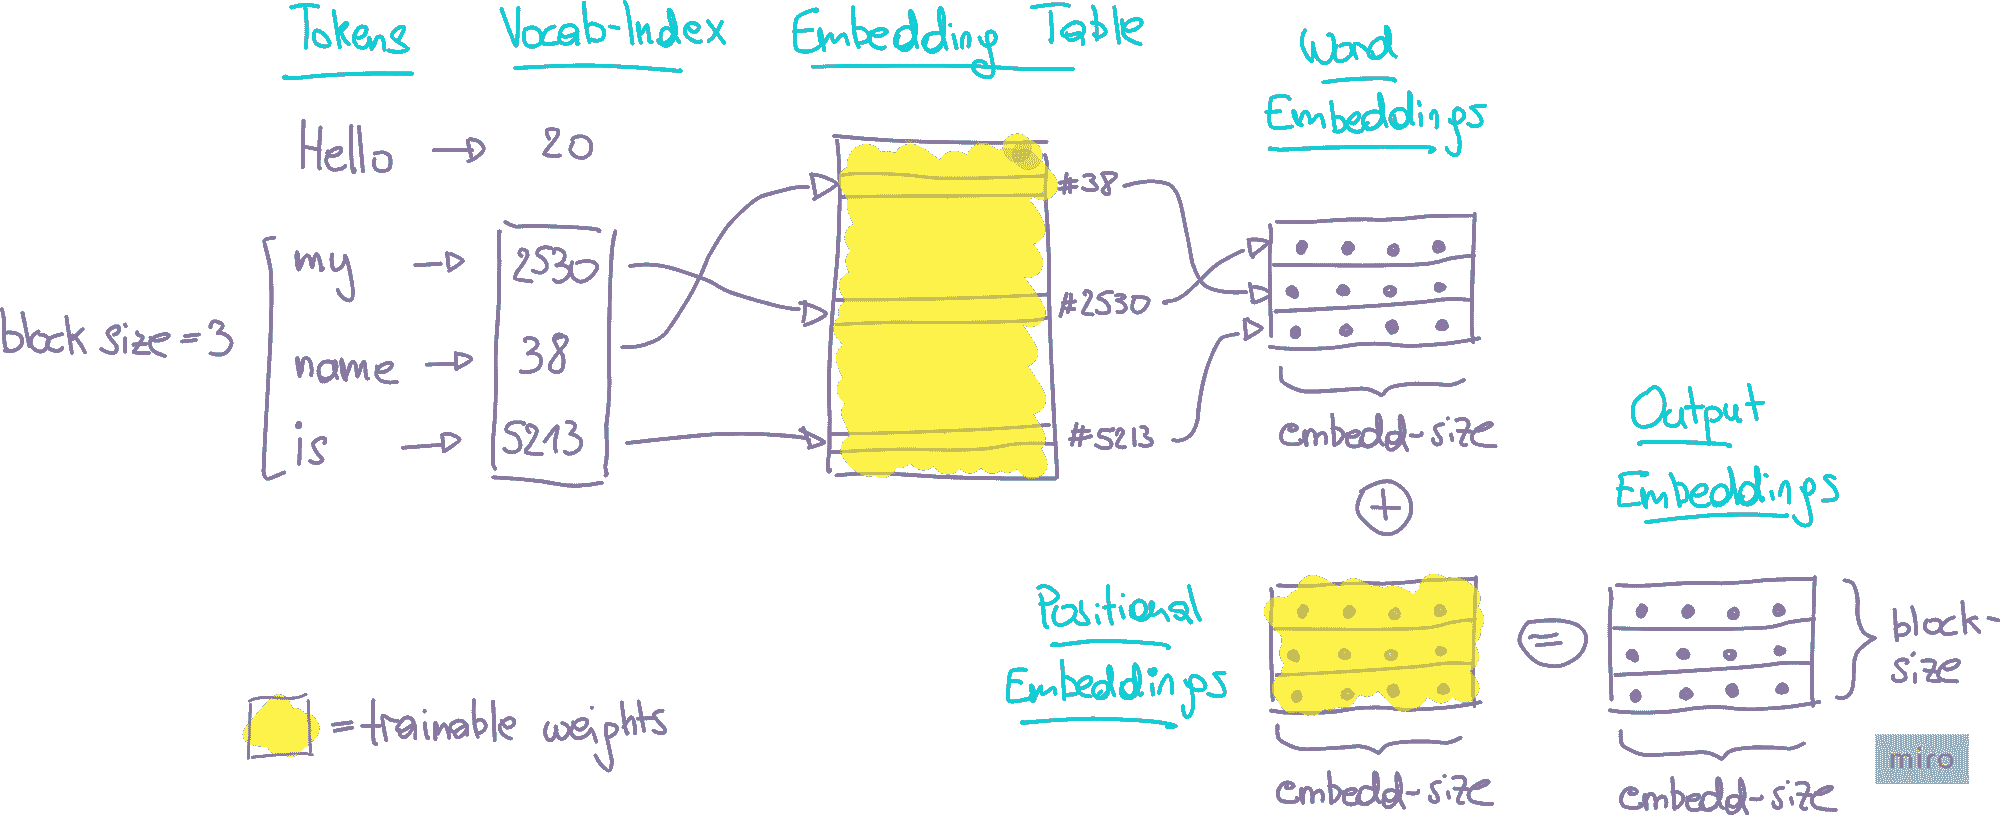 Tokens
Vocab-Index
Embedding Table
Word
Embeddings
Hello
20
my
2530
name
38
is
5213
block size = 3
#38
#2530
#5213
embedd-size
+
Output
Embeddings
Positional
Embeddings
=
block-
size
embedd-size
embedd-size
= trainable weights
miro